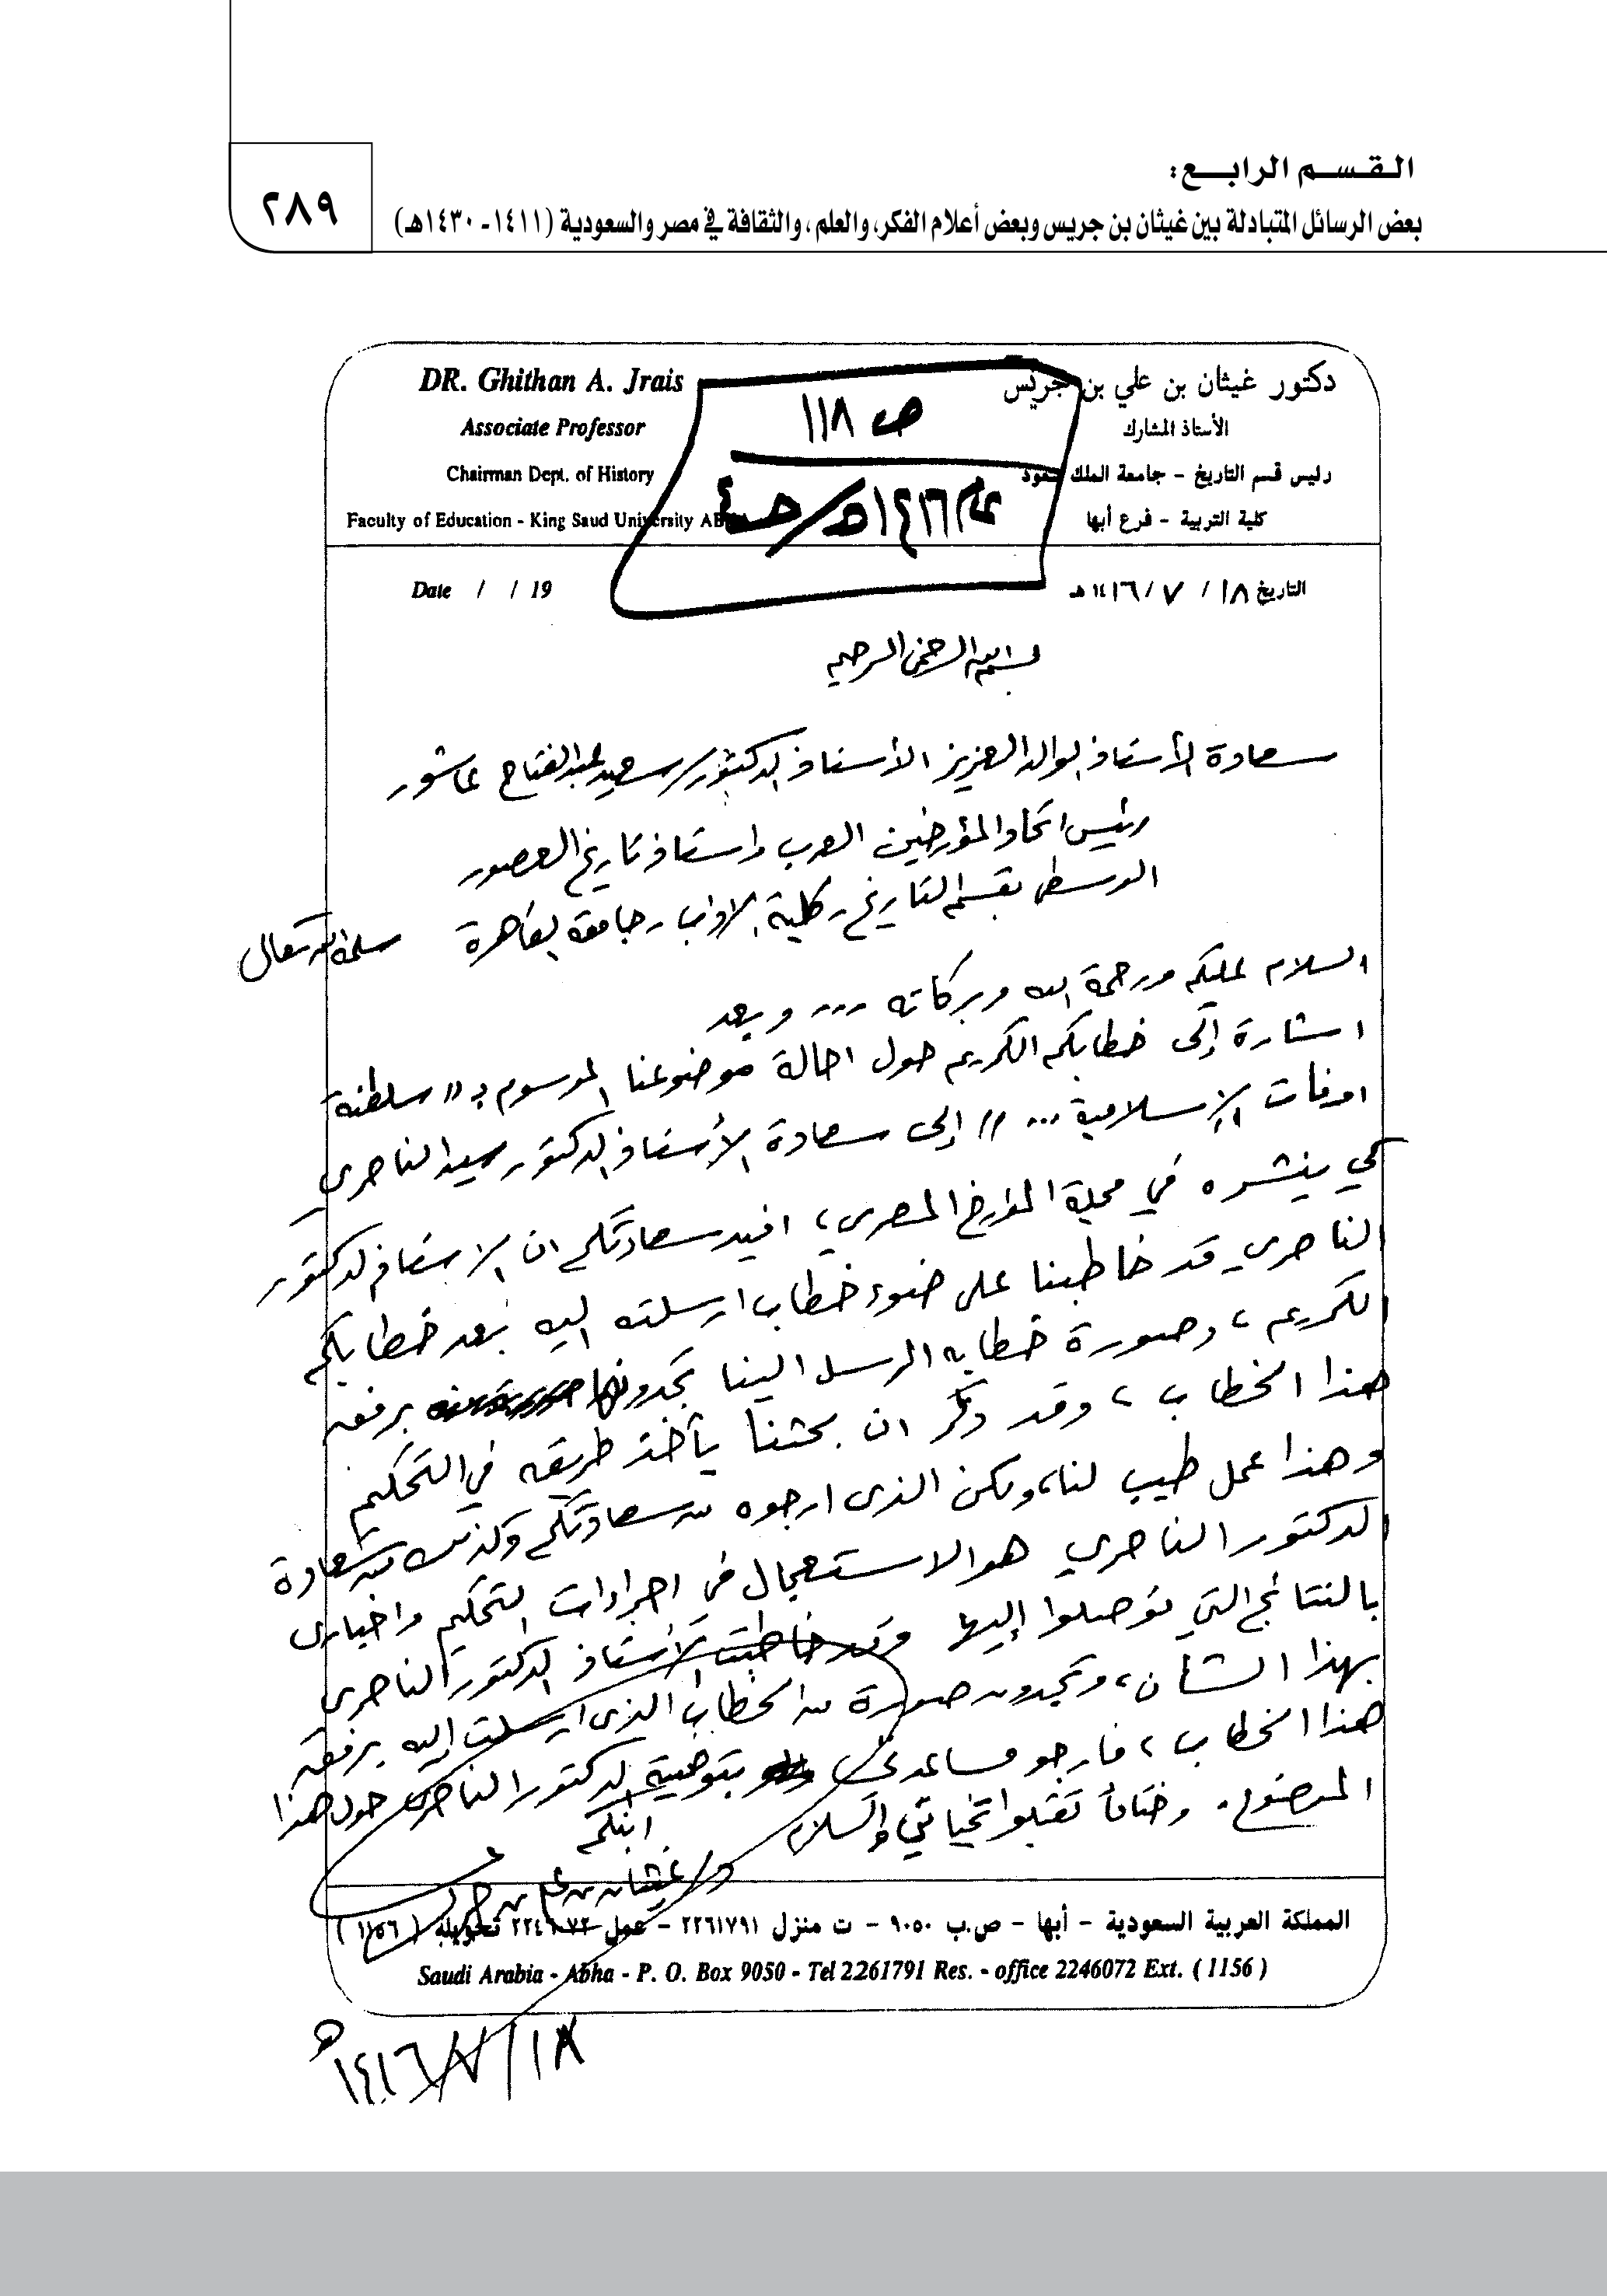 القسم الرابع:
بعض الرسائل المتبادلة بين غيثان بن جريس وبعض أعلام الفكر، والعلم، والثقافة في مصر والسعودية (١٤١١-١٤٣٠هـ)
٢٨٩
دكتور غيثان بن علي بن جريس
الأستاذ المشارك
رئيس قسم التاريخ - جامعة الملك سعود
كلية التربية - فرع أبها
DR. Ghithan A. Jrais
Associate Professor
Chairman Dept. of History
Faculty of Education - King Saud University ABHA
ص ١١٨
عام ١٤١٦هـ/ حـ٤
التاريخ ١٨ / ٧ / ١٤١٦ هـ
Date / / 19
بسم الله الرحمن الرحيم
سعادة الأستاذ الوالد العزيز الأستاذ الدكتور/ سعيد عبدالفتاح عاشور
رئيس اتحاد المؤرخين العرب واستاذ تاريخ العصور
الوسطى بقسم التاريخ - كلية الاداب - جامعة القاهرة سلمه الله تعالى
السلام عليكم ورحمة الله وبركاته ... وبعد
اشارة إلى خطابكم الكريم حول احالة موضوعنا الموسوم بـ " سلطنة
اوفات الإسلامية ... " إلى سعادة الأستاذ الدكتور سيد الناصري
كي ينشره في مجلة المؤرخ المصري، افيد سعادتكم ان الاستاذ الدكتور
الناصري قد خاطبنا على ضوء خطاب ارسلته اليه بعد خطابكم
الكريم، وصورة خطابه المرسل الينا تجدونها برفقه
هذا الخطاب، وقد ذكر ان بحثنا يأخذ طريقه في التحكيم
وهذا عمل طيب لنا، ولكن الذى ارجوه من سعادتكم وكذلك من سعادة
الدكتور الناصري هو الاستعجال في اجراءات التحكيم واخبارى
بالنتائج التي توصلوا إليها وقد خاطبت الأستاذ الدكتور الناصري
بهذا الشأن، وتجدون صورة من الخطاب الذى ارسلت إليه برفقه
هذا الخطاب، فارجو مساعدتي بتوصية الدكتور الناصري حول هذا
الموضوع. وختاماً تقبلوا تحياتي والسلام
ابنكم
د/ غيثان بن علي بن جريس
المملكة العربية السعودية - أبها - ص.ب ٩٠٥٠ - ت منزل ٢٢٦١٧٩١ - عمل ٢٢٤٦٠٧٢ تحويلة (١١٥٦)
Saudi Arabia - Abha - P. O. Box 9050 - Tel 2261791 Res. - office 2246072 Ext. ( 1156 )
١٤١٦/٧/١٨هـ